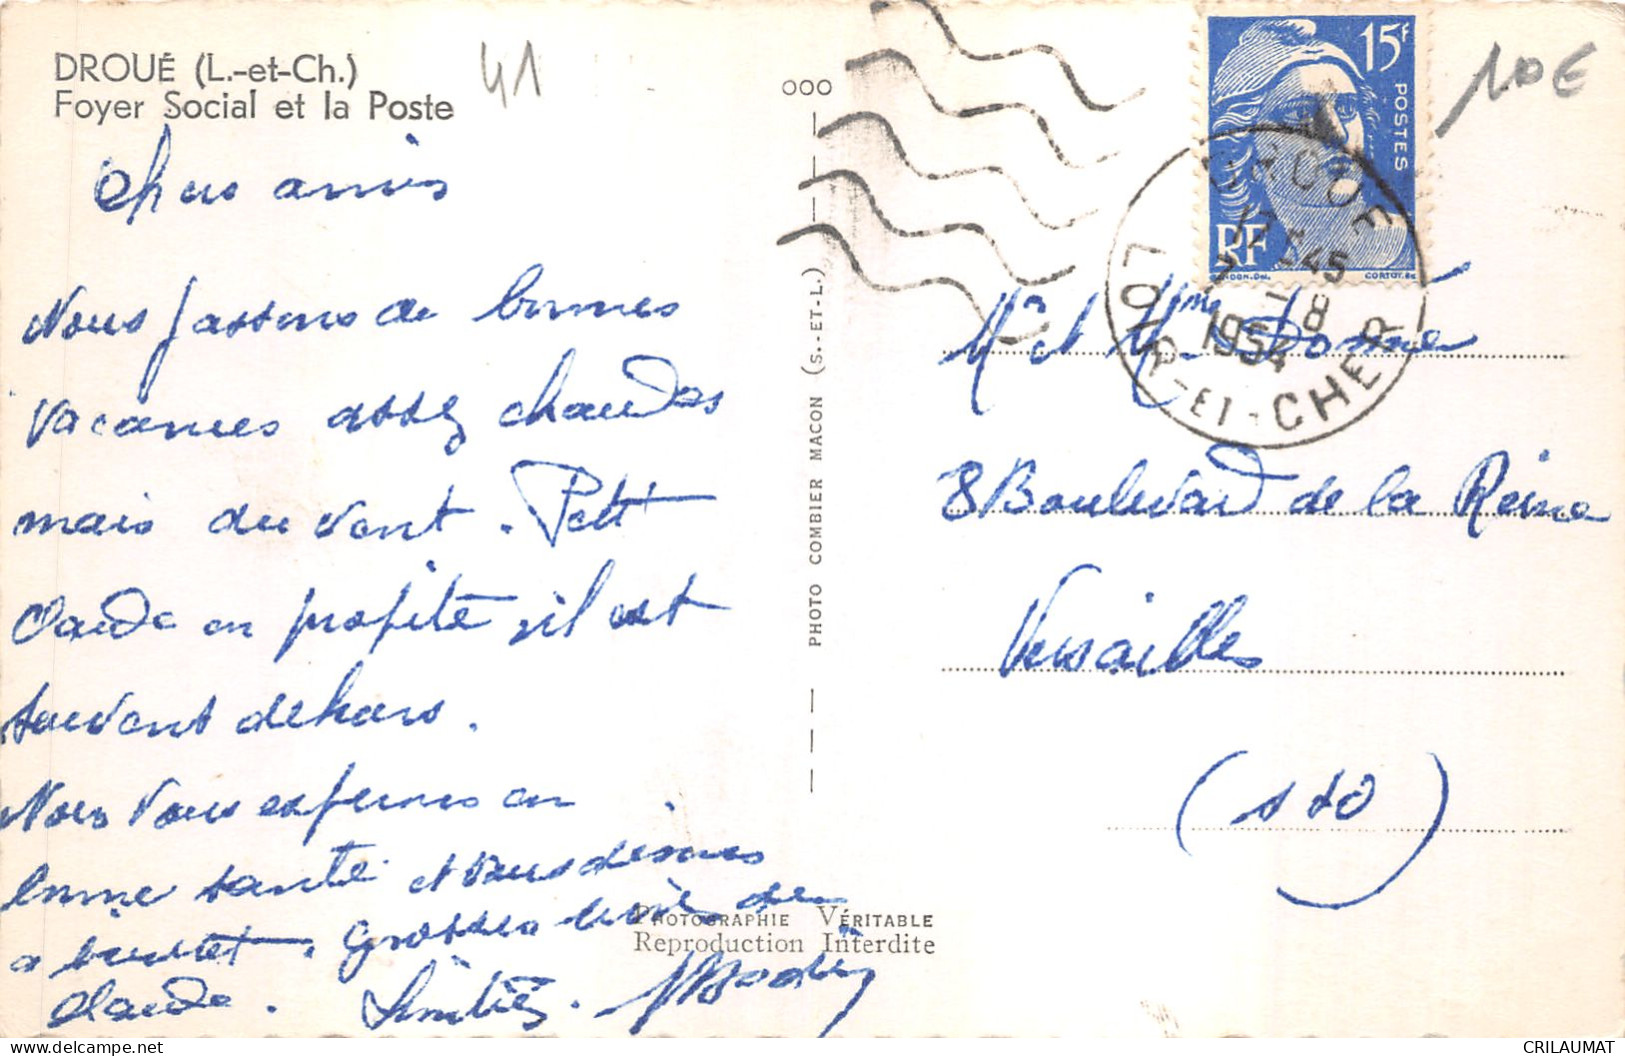 DROUÉ (L.-et-Ch.)
Foyer Social et la Poste
41
Chers amis
Nous passons de bonnes
vacances assez chaudes
mais du vent. Petit
Claude en profite, il est
souvent dehors.
Nous vous espérons en
bonne santé et vous disons
a bientôt. Grosses bises de
Claude. Amitiés.
PHOTO COMBIER MACON (S.-ET-L.)
PHOTOGRAPHIE VÉRITABLE
Reproduction Interdite
15F
POSTES
RF
CORTOT.SC
DROUE
17-45
7-8
1954
LOIR-ET-CHER
10€
Mr et Mme
8 Boulevard de la Reine
Versailles
(S&O)
CRILAUMAT